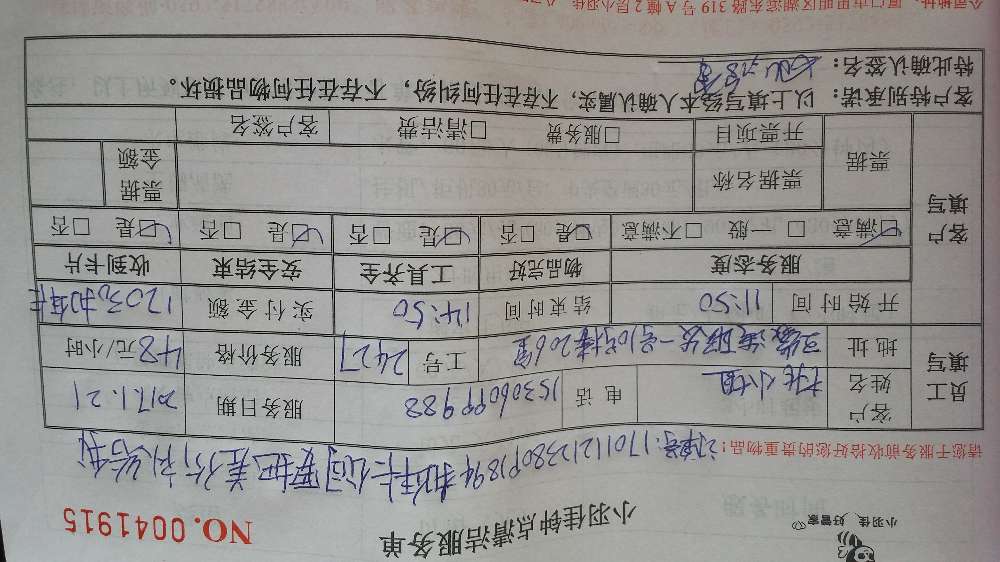 小羽佳 好管家
小羽佳钟点清洁服务单
NO.0041915
请您于服务前收拾好您的贵重物品!
员工填写
客户姓名
林小姐
电话
15306099988
服务日期
2017.1.21
地址
工号
2427
服务价格
48元/小时
开始时间
11:50
结束时间
14:50
实付金额
120元
客户填写
服务态度
物品完好
工具齐全
安全结束
收到卡片
□满意 □一般 □不满意
□是 □否
□是 □否
□是 □否
□是 □否
票据
票据名称
票据金额
开票项目
□服务费 □清洁费
客户签名
客户特别承诺:以上填写经本人确认属实,不存在任何纠纷,不存在任何物品损坏。
特此确认签名:
公司地址:厦门市思明区湖滨东路319号A幢2层小羽佳